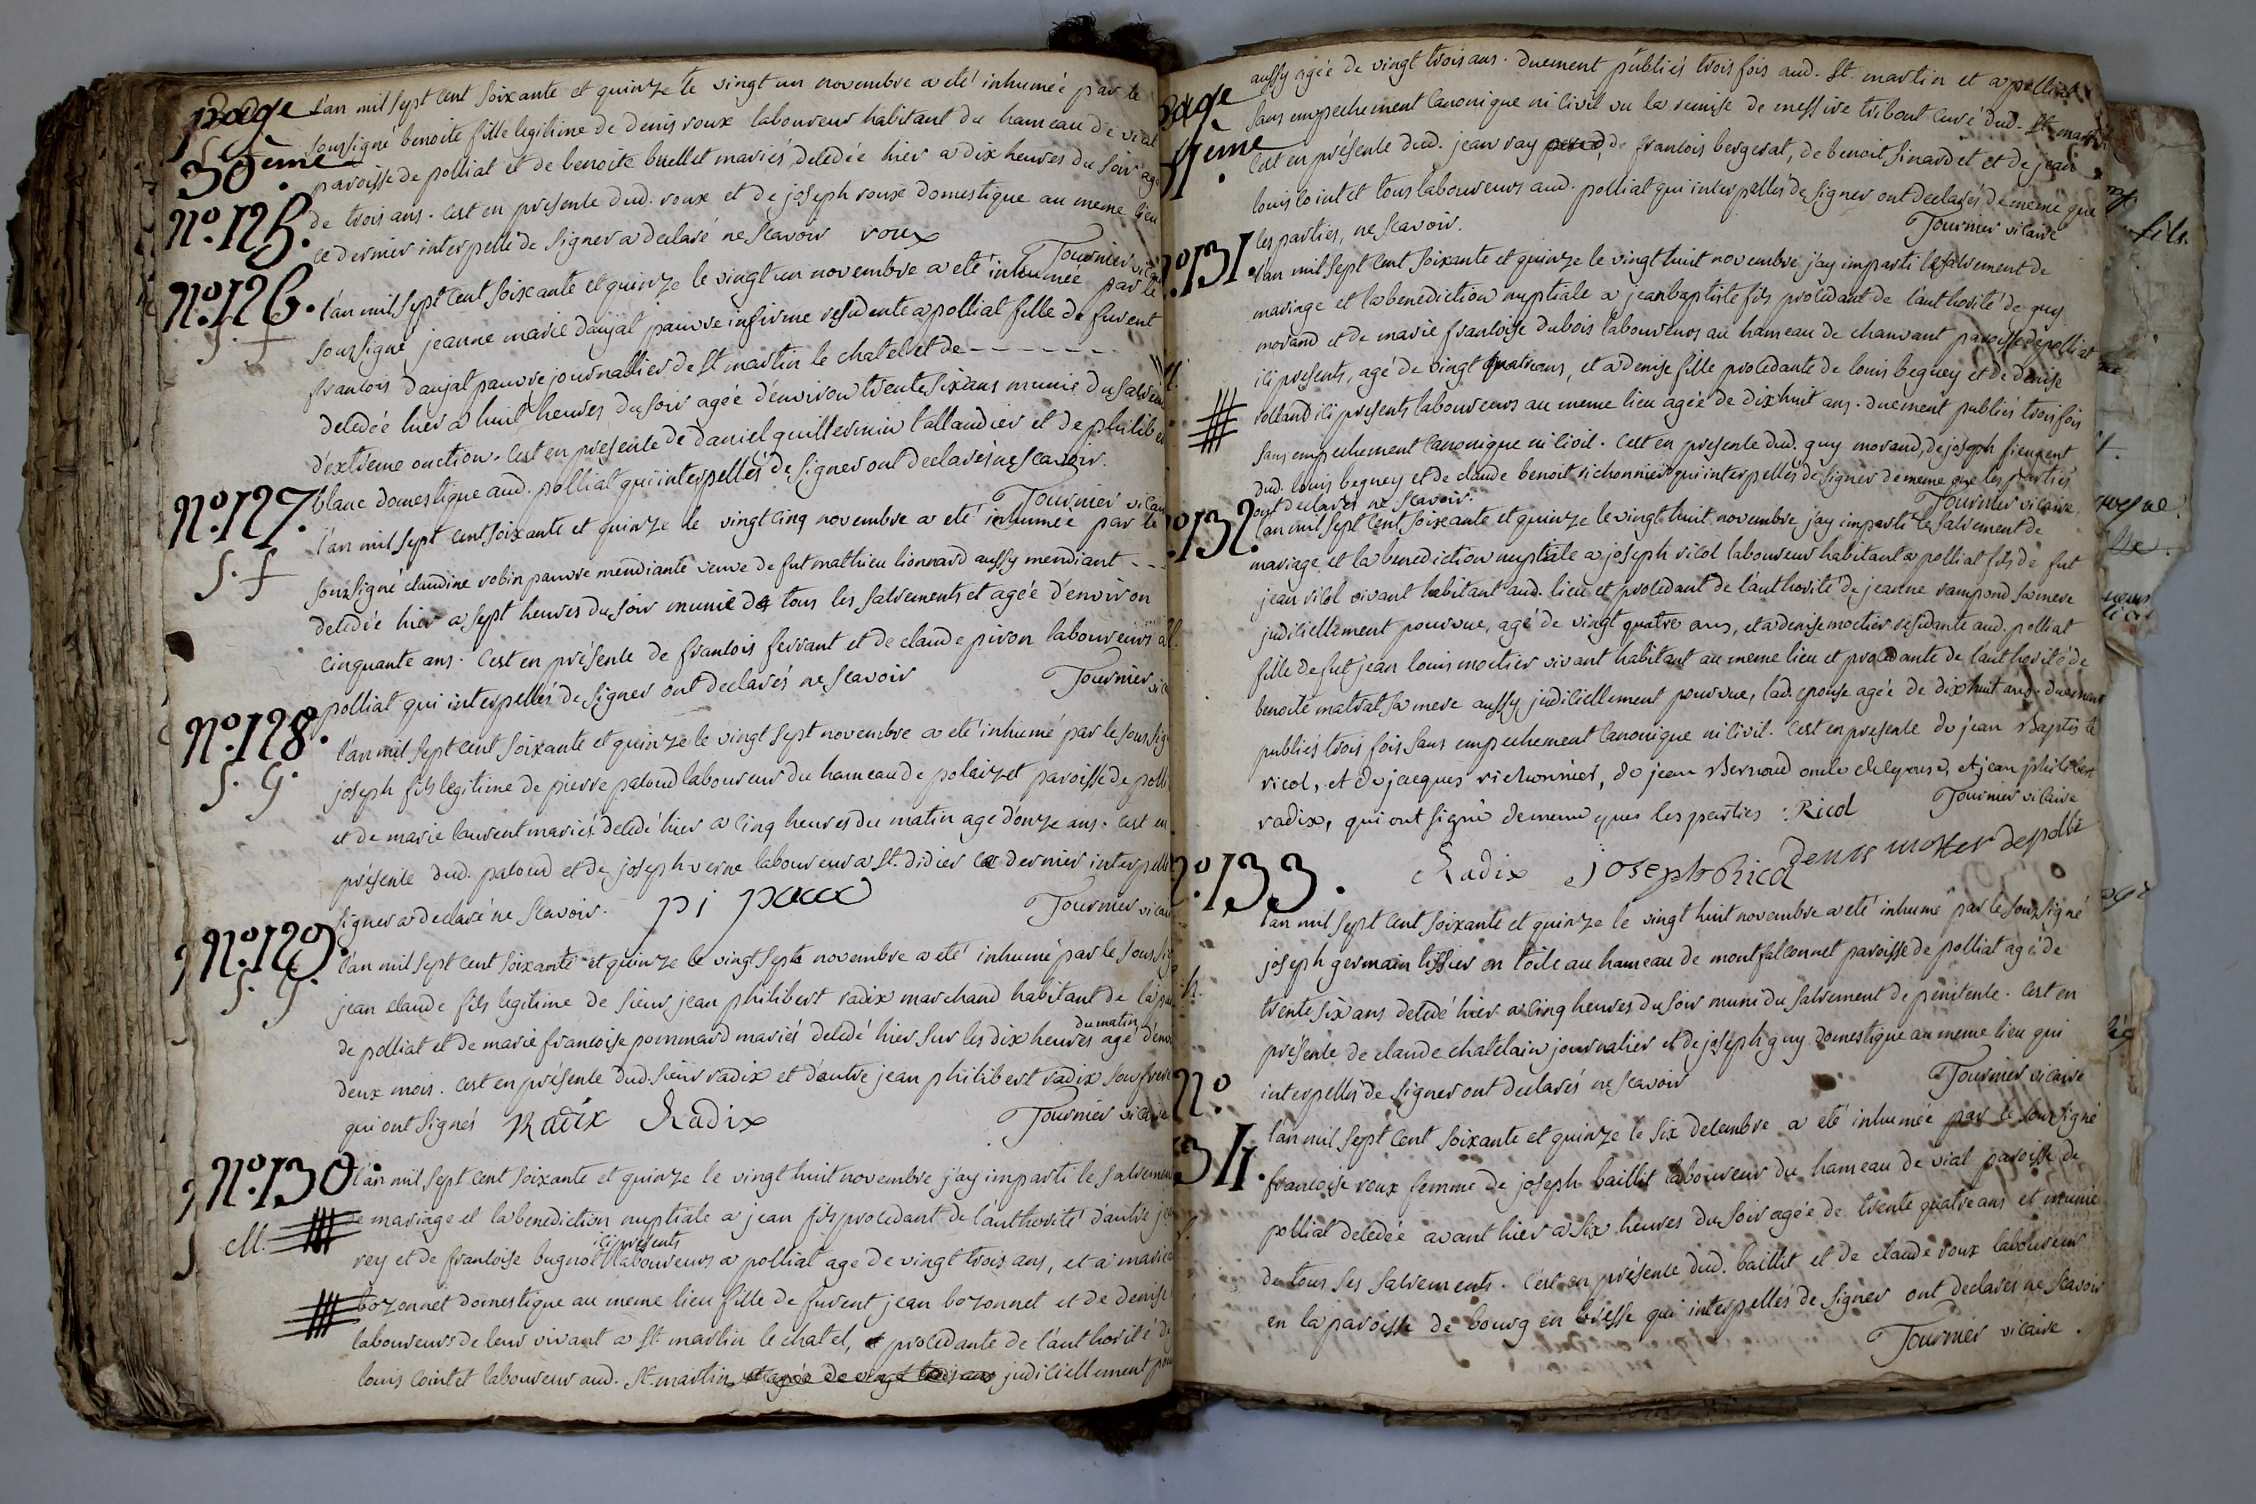 page
30ème
No. 125.
L'an mil sept cent soixante et quinze le vingt un novembre a eté inhumée par le
soussigné benoite fille legitime de denis roux laboureur habitant du hameau de vial
paroisse de polliat et de benoite buellet mariés decedée hier a dix heures du soir agé
de trois ans. C'est en presence dud. roux et de joseph roux domestique au meme lieu
ce dernier interpellé de signer a declaré ne scavoir roux
Tournier vic
No. 126.
S. f
L'an mil sept cent soixante et quinze le vingt un novembre a eté inhumée par le
soussigné jeanne marie daujat pauvre infirme residente a polliat fille de furent
francois daujat pauvre journallier de St martin le chatel et de - - - - - - -
decedée hier a huit heures du soir agée d'environ trente six ans munie du sacrem
d'extreme onction. C'est en presence de daniel guillermin tallandier et de philib
blanc domestique aud. polliat qui interpellés de signer ont declarés ne scavoir.
Tournier vicaire
No. 127.
S. f
L'an mil sept cent soixante et quinze le vingt cinq novembre a eté inhumée par le
soussigné claudine robin pauvre mendiante veuve de fut mathieu lionnard aussy mendiant - - -
decedée hier a sept heures du soir munie de tous les sacrements et agée d'environ
cinquante ans. C'est en présence de francois ferrant et de claude piron laboureurs a
polliat qui interpellés de signer ont declarés ne scavoir
Tournier vic
No. 128.
S. G.
L'an mil sept cent soixante et quinze le vingt sept novembre a eté inhumé par le soussig
joseph fils legitime de pierre paloud laboureur du hameau de polaizet paroisse de polli
et de marie laurent mariés decedé hier a cinq heures du matin agé d'onze ans. C'est en
présence dud. paloud et de joseph verne laboureur a St. didier ce dernier interpellé
signer a declaré ne scavoir.
Tournier vicaire
No. 129.
S. G.
L'an mil sept cent soixante et quinze le vingt sept novembre a eté inhumé par le soussig
jean claude fils legitime de sieur jean philibert radix marchand habitant de la pa
de polliat et de marie francoise pommard mariés decedé hier sur les dix heures du matin agé d'env
deux mois. C'est en présence dud. sieur radix et d'autre jean philibert radix son frere
qui ont signés Radix Radix
Tournier vicaire
No. 130.
M.
L'an mil sept cent soixante et quinze le vingt huit novembre j'ay imparti le sacremen
de mariage et la benediction nuptiale a jean fils procedant de l'authorité d'autre je
rey et de francoise bugnot ici présents laboureurs a polliat agé de vingt trois ans, et a marie
bozonnet domestique au meme lieu fille de furent jean bozonnet et de denise
laboureurs de leur vivant a St. martin le chatel, et procedante de l'authorité de
louis cointet laboureur aud. St. martin et agée de vingt trois ans judiciellement pou
page
ème
aussy agée de vingt trois ans. duement publiés trois fois aud. St. martin et a polliat
sans empechement canonique ni civil vu la remise de messire tribout curé dud. St martin
C'est en présence dud. jean ray de francois bergerat, de benoit sinardet et de jean
louis cointet tous laboureurs aud. polliat qui interpellés de signer ont declarés de meme que
les parties, ne scavoir.
Tournier vicaire
131.
L'an mil sept cent soixante et quinze le vingt huit novembre j'ay imparti le sacrement de
mariage et la benediction nuptiale a jean baptiste fils procedant de l'authorité de guy
morand et de marie francoise dubois laboureurs au hameau de chanvant paroisse de polliat
ici presents, agé de vingt quatre ans, et a denise fille procedante de louis beguey et de denise
rolland ici presents laboureurs au meme lieu agée de dix huit ans. duement publiés trois fois
sans empechement canonique ni civil. C'est en presence dud. guy morand, de joseph
dud. louis beguey et de claude benoit richonnier qui interpellés de signer de meme que les parties
ont declarés ne scavoir.
Tournier vicaire
132.
L'an mil sept cent soixante et quinze le vingt huit novembre j'ay imparti le sacrement de
mariage et la benediction nuptiale a joseph ricol laboureur habitant a polliat fils de fut
jean ricol vivant habitant aud. lieu et procedant de l'authorité de jeanne rampond sa mere
judiciellement pourvue, agé de vingt quatre ans, et a denise moctier residante aud. polliat
fille de fut jean louis moctier vivant habitant au meme lieu et procedante de l'authorité de
benoite malrat sa mere aussy judiciellement pourvue, lad. epouse agée de dix huit ans. duement
publiés trois fois sans empechement canonique ni civil. C'est en presence de jean Baptiste
ricol, et de jacques richonnier, de jean Bernoud oncle de lepouse, et jean philibert
radix, qui ont signé de meme que les parties. Ricol
Tournier vicaire
Radix joseph Ricol denis
133.
L'an mil sept cent soixante et quinze le vingt huit novembre a eté inhumé par le soussigné
joseph germain tissier en toile au hameau de montfalconnet paroisse de polliat agé de
trente six ans decedé hier a cinq heures du soir muni du sacrement de penitence. C'est en
présence de claude chatelain journalier et de joseph guy domestique au meme lieu qui
interpellés de signer ont declarés ne scavoir
Tournier vicaire
No
34.
L'an mil sept cent soixante et quinze le six decembre a eté inhumée par le soussigné
francoise roux femme de joseph baillit laboureur du hameau de vial paroisse de
polliat decedée avant hier a six heures du soir agée de trente quatre ans et munie
de tous ses sacrements. C'est en présence dud. baillit et de claude roux laboureur
en la paroisse de bourg en bresse qui interpellés de signer ont declarés ne scavoir
Tournier vicaire.
fils